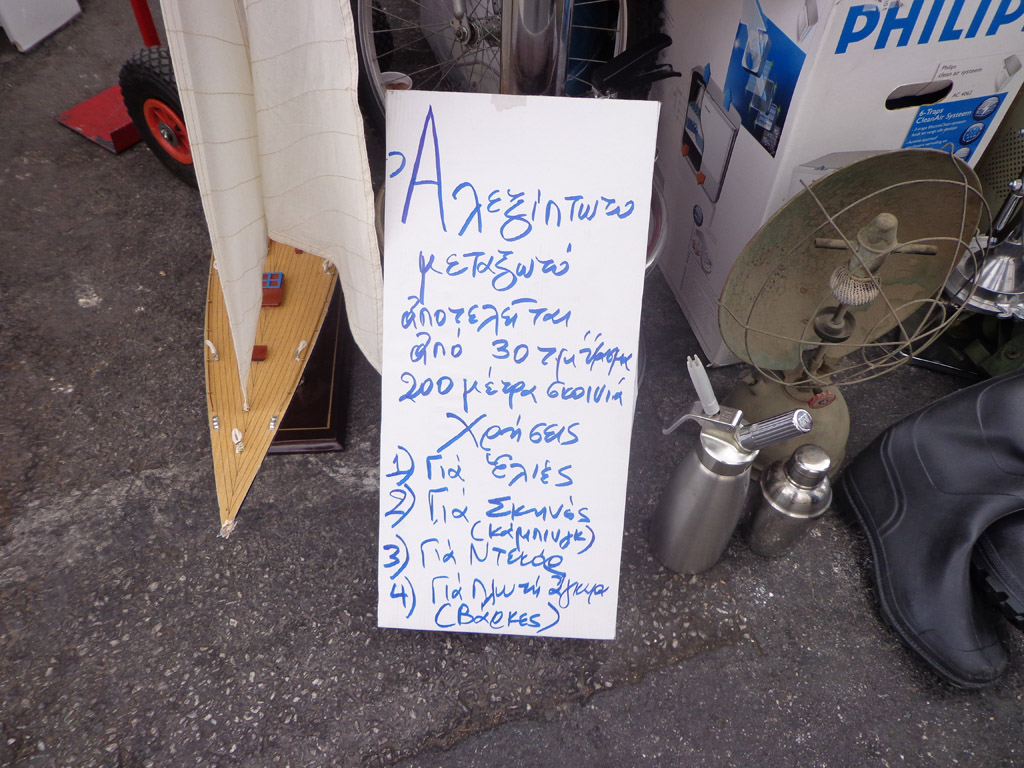 PHILIP
Philips
clean air system
AC 4062
6-Traps
CleanAir System
Ἀλεξίπτωτο
μεταξωτό
ἀποτελεῖται
ἀπό 30 τμήματα
200 μέτρα σκοινιά
Χρήσεις
1) Γιά Ἐλιές
2) Γιά Σκηνάς
(κάμπινγκ)
3) Γιά Ντεκόρ
4) Γιά Πλωτή ἄγκυρα
(Βάρκες)